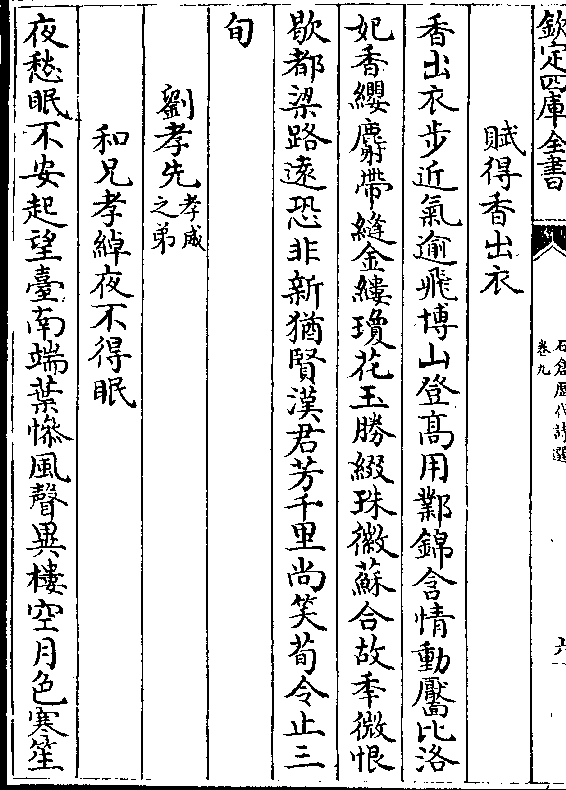 欽定四庫全書
石倉歷代詩選
卷九
六
賦得香出衣
香出衣步近氣逾飛博山登髙用鄴錦含情動靨比洛
妃香纓麝帶縫金縷瓊花玉勝綴珠徽蘇合故季微恨
歇都梁路遠恐非新猶賢漢君芳千里尚笑荀令止三
旬
劉孝先孝威之弟
和兄孝綽夜不得眠
夜愁眠不安起望臺南端葉慘風聲異樓空月色寒笙